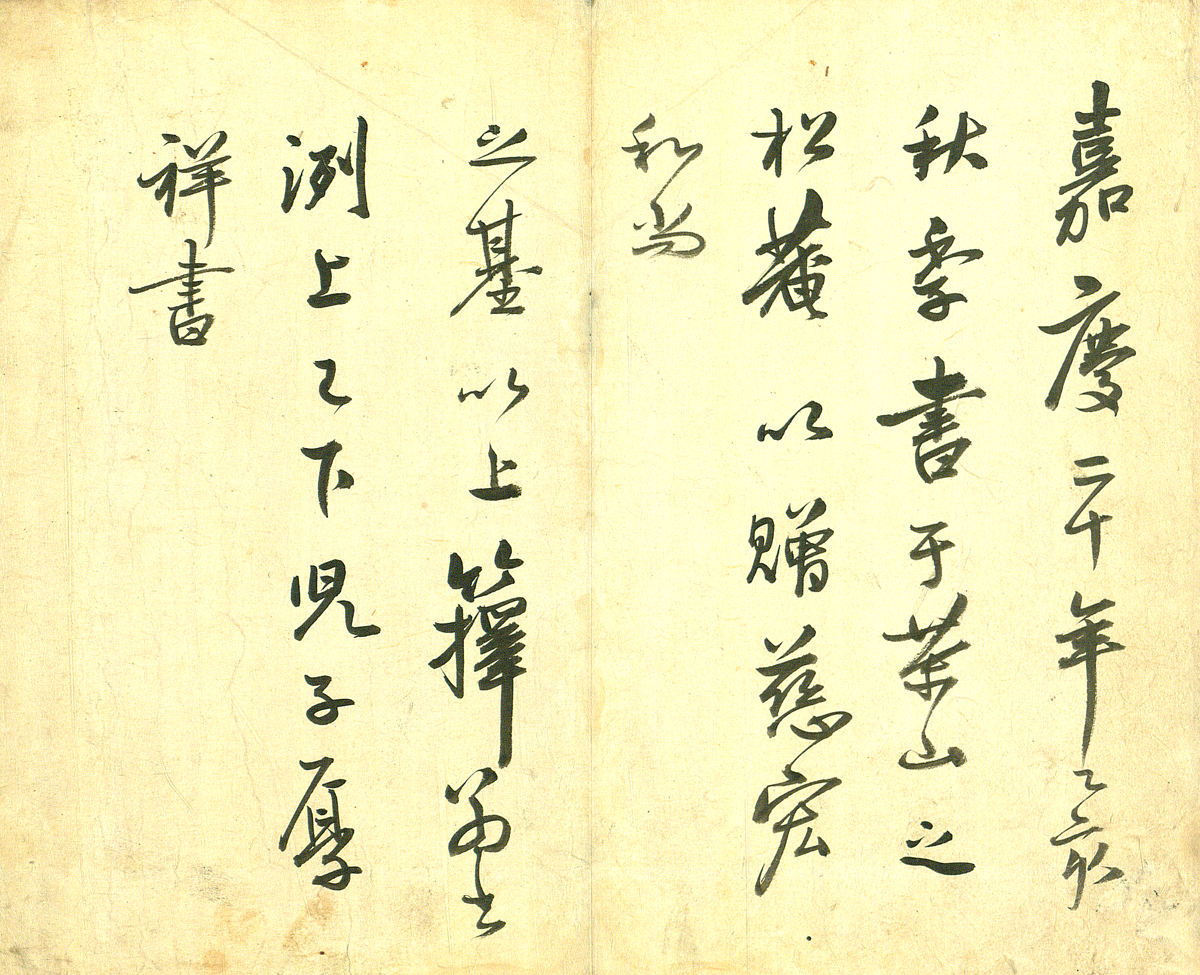 嘉慶二十年乙亥
秋季書于茶山之
松菴 以贈慈宏
和尚
之基以上籜翁
洌上已下兒子厚
祥書